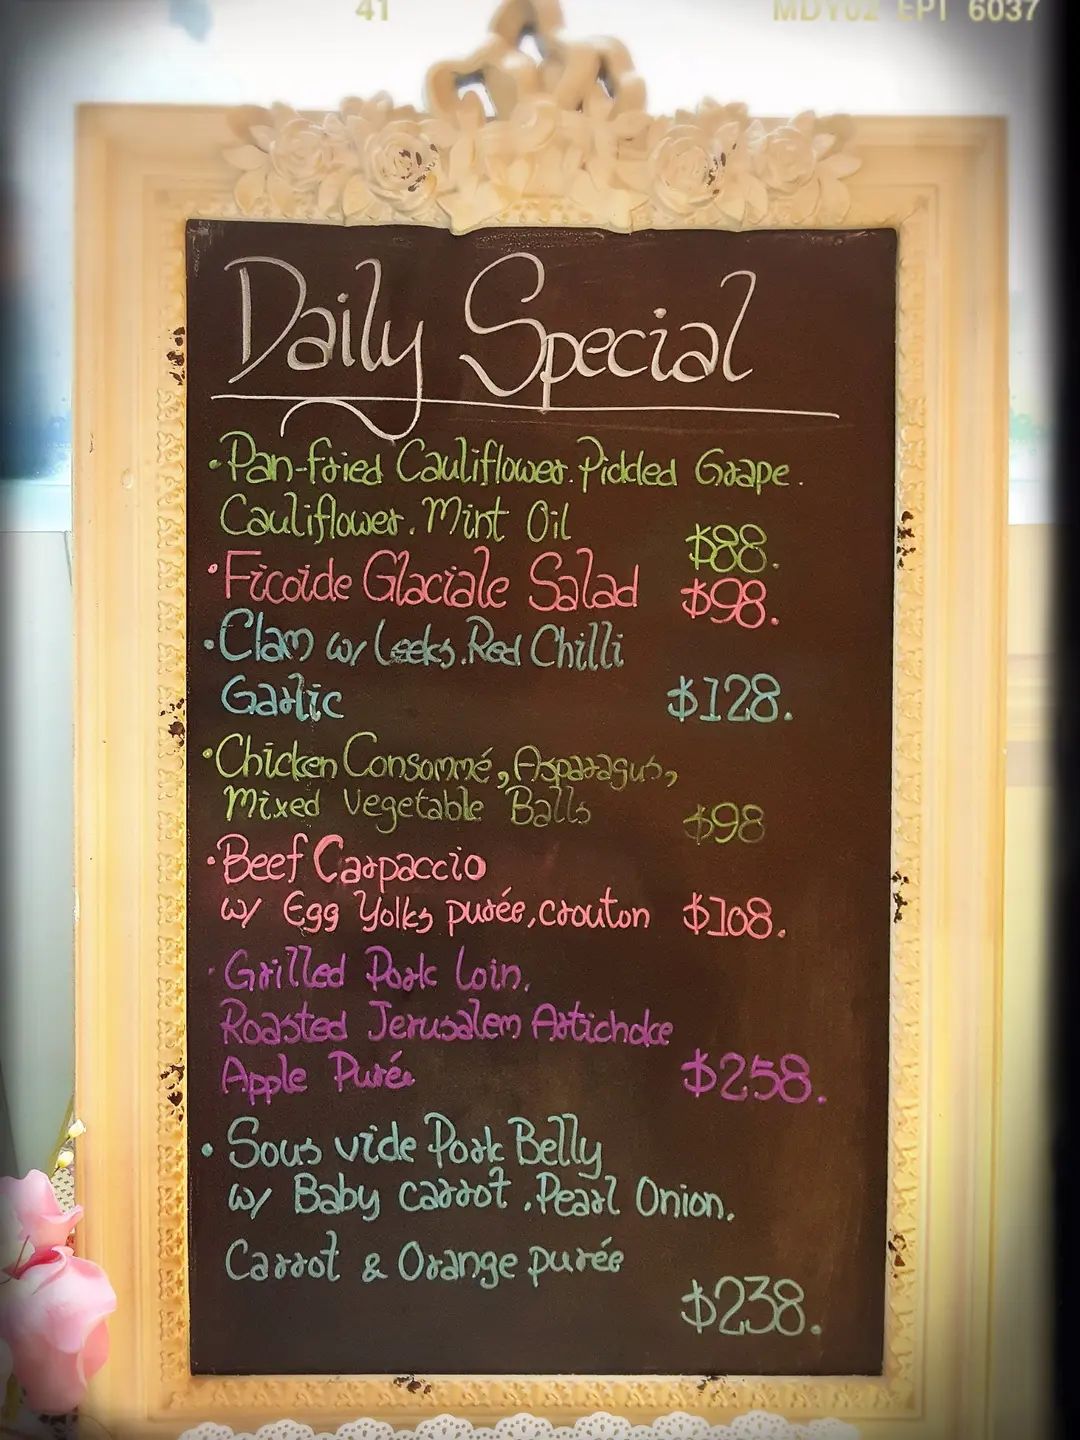 41 MDY02 EPI 6037
Daily Special
·Pan-fried Cauliflower. Pickled Grape.
Cauliflower. Mint Oil $88.
·Ficoide Glaciale Salad $98.
·Clam w/ Leeks. Red Chilli
Garlic $128.
·Chicken Consommé, Asparagus,
Mixed Vegetable Balls $98
·Beef Carpaccio
w/ Egg Yolks purée, crouton $108.
·Grilled Pork Loin,
Roasted Jerusalem Artichoke
Apple Purée $258.
·Sous vide Pork Belly
w/ Baby carrot. Pearl Onion,
Carrot & Orange purée
$238.